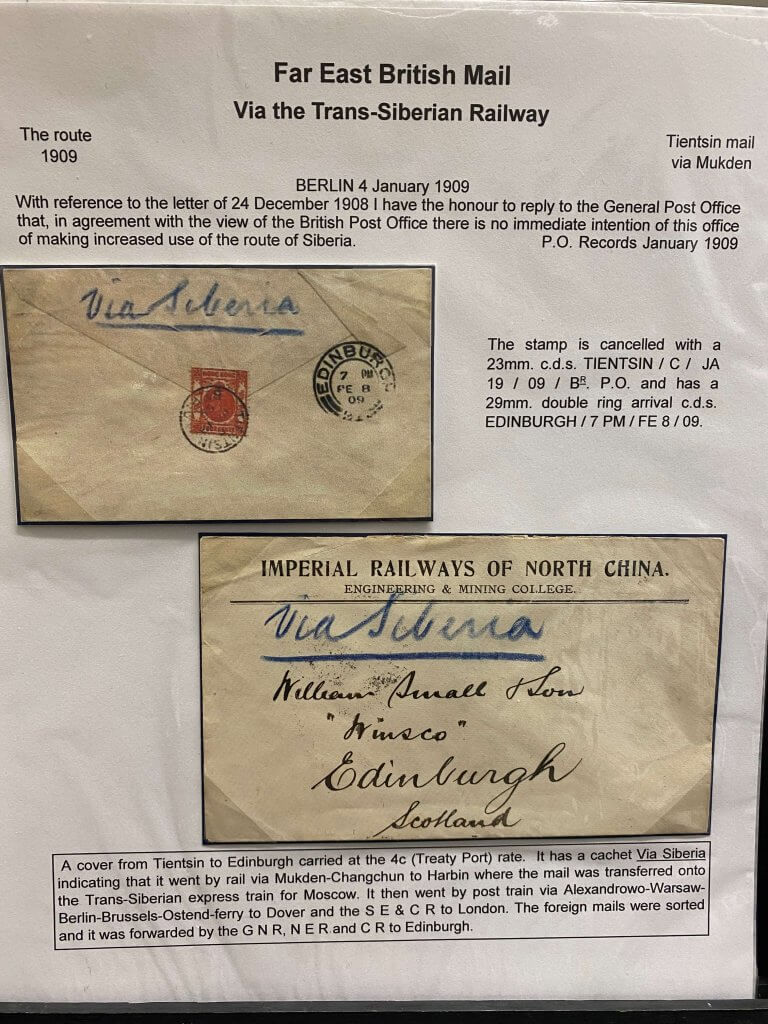 Far East British Mail
Via the Trans-Siberian Railway
The route
1909
Tientsin mail
via Mukden
BERLIN 4 January 1909
With reference to the letter of 24 December 1908 I have the honour to reply to the General Post Office
that, in agreement with the view of the British Post Office there is no immediate intention of this office
of making increased use of the route of Siberia.
P.O. Records January 1909
Via Siberia
EDINBURGH
7 PM
FE 8
09
TIENTSIN
The stamp is cancelled with a
23mm. c.d.s. TIENTSIN / C / JA
19 / 09 / Bᴿ. P.O. and has a
29mm. double ring arrival c.d.s.
EDINBURGH / 7 PM / FE 8 / 09.
IMPERIAL RAILWAYS OF NORTH CHINA.
ENGINEERING & MINING COLLEGE.
Via Siberia
William Small & Son
"Winsco"
Edinburgh
Scotland
A cover from Tientsin to Edinburgh carried at the 4c (Treaty Port) rate. It has a cachet Via Siberia
indicating that it went by rail via Mukden-Changchun to Harbin where the mail was transferred onto
the Trans-Siberian express train for Moscow. It then went by post train via Alexandrowo-Warsaw-
Berlin-Brussels-Ostend-ferry to Dover and the S E & C R to London. The foreign mails were sorted
and it was forwarded by the G N R, N E R and C R to Edinburgh.